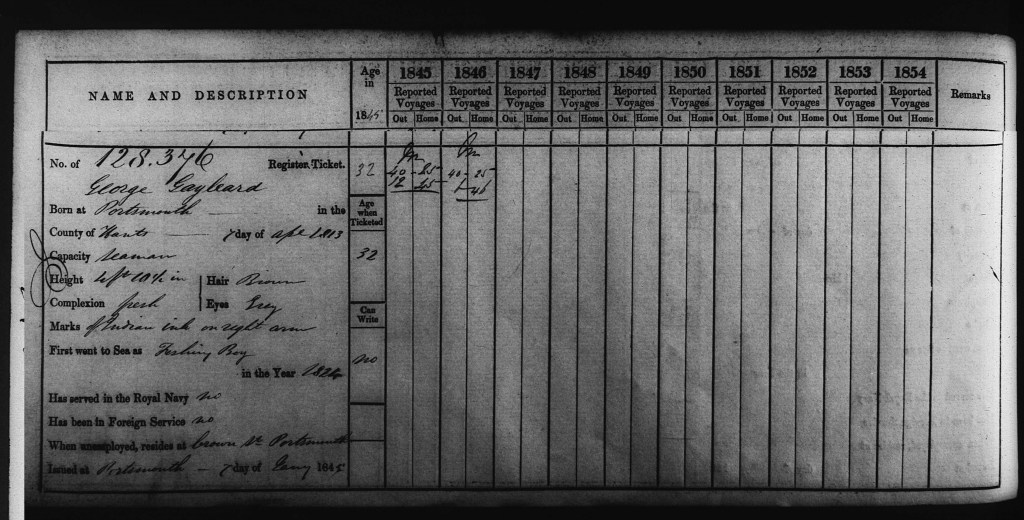 NAME AND DESCRIPTION
Age in 1845
1845 Reported Voyages Out Home
1846 Reported Voyages Out Home
1847 Reported Voyages Out Home
1848 Reported Voyages Out Home
1849 Reported Voyages Out Home
1850 Reported Voyages Out Home
1851 Reported Voyages Out Home
1852 Reported Voyages Out Home
1853 Reported Voyages Out Home
1854 Reported Voyages Out Home
Remarks
No. of 128.376 Register Ticket.
32
40-25 40-25
12 45 1-46
George Gayleard
Born at Portsmouth in the
Age when Ticketed
County of Hants 7 day of Apl 1813
Capacity Seaman
32
Height 4 ft 10½ in Hair Brown
Complexion fresh Eyes Gray
Can Write
Marks Indian ink on right arm
First went to Sea as Fishing Boy
no
in the Year 1824
Has served in the Royal Navy no
Has been in Foreign Service no
When unemployed, resides at Crown St Portsmouth
Issued at Portsmouth 7 day of Jany 1845